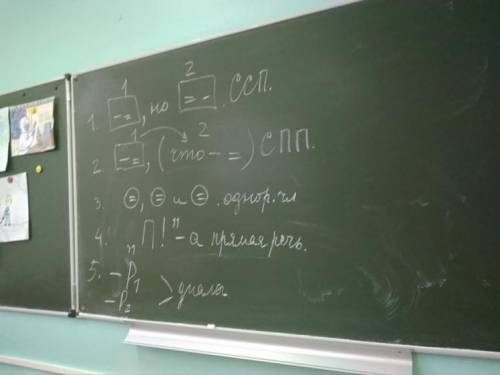 1 2
1. [- =], но [= -]. ССП.
1 2
2. [- =], (что - =) СПП.
3. (=), (=) и (=). однор. чл
4. „П!" - а прямая речь.
5. - Р1
- Р2 > диалог